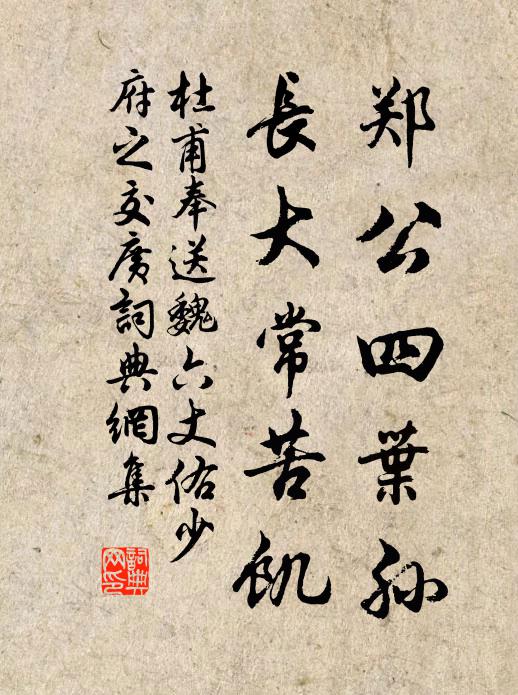 郑公四葉孙
長大常苦飢
杜甫奉送魏六丈佑少
府之交廣詞典網集
詞典
网印